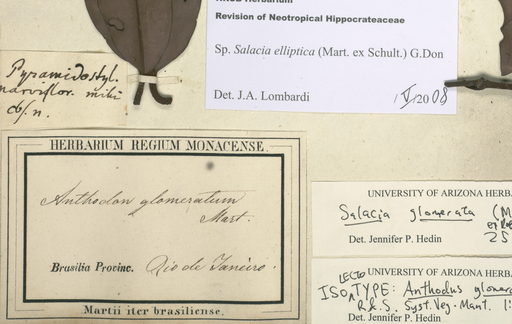 HRCB Herbarium
Revision of Neotropical Hippocrateaceae
Sp. Salacia elliptica (Mart. ex Schult.) G.Don
Det. J.A. Lombardi
/ V /2008
Pyramidostyl.
parviflor. mihi
HERBARIUM REGIUM MONACENSE.
Anthodon glomeratum
Mart.
Brasilia Provinc. Rio de Janeiro.
Martii iter brasiliense.
UNIVERSITY OF ARIZONA HERB
Salacia glomerata (M
Det. Jennifer P. Hedin 25
UNIVERSITY OF ARIZONA HERB
LECTO
ISO^TYPE: Anthodus glomera
R.&S. Syst. Veg. Mant. 1:
Det. Jennifer P. Hedin